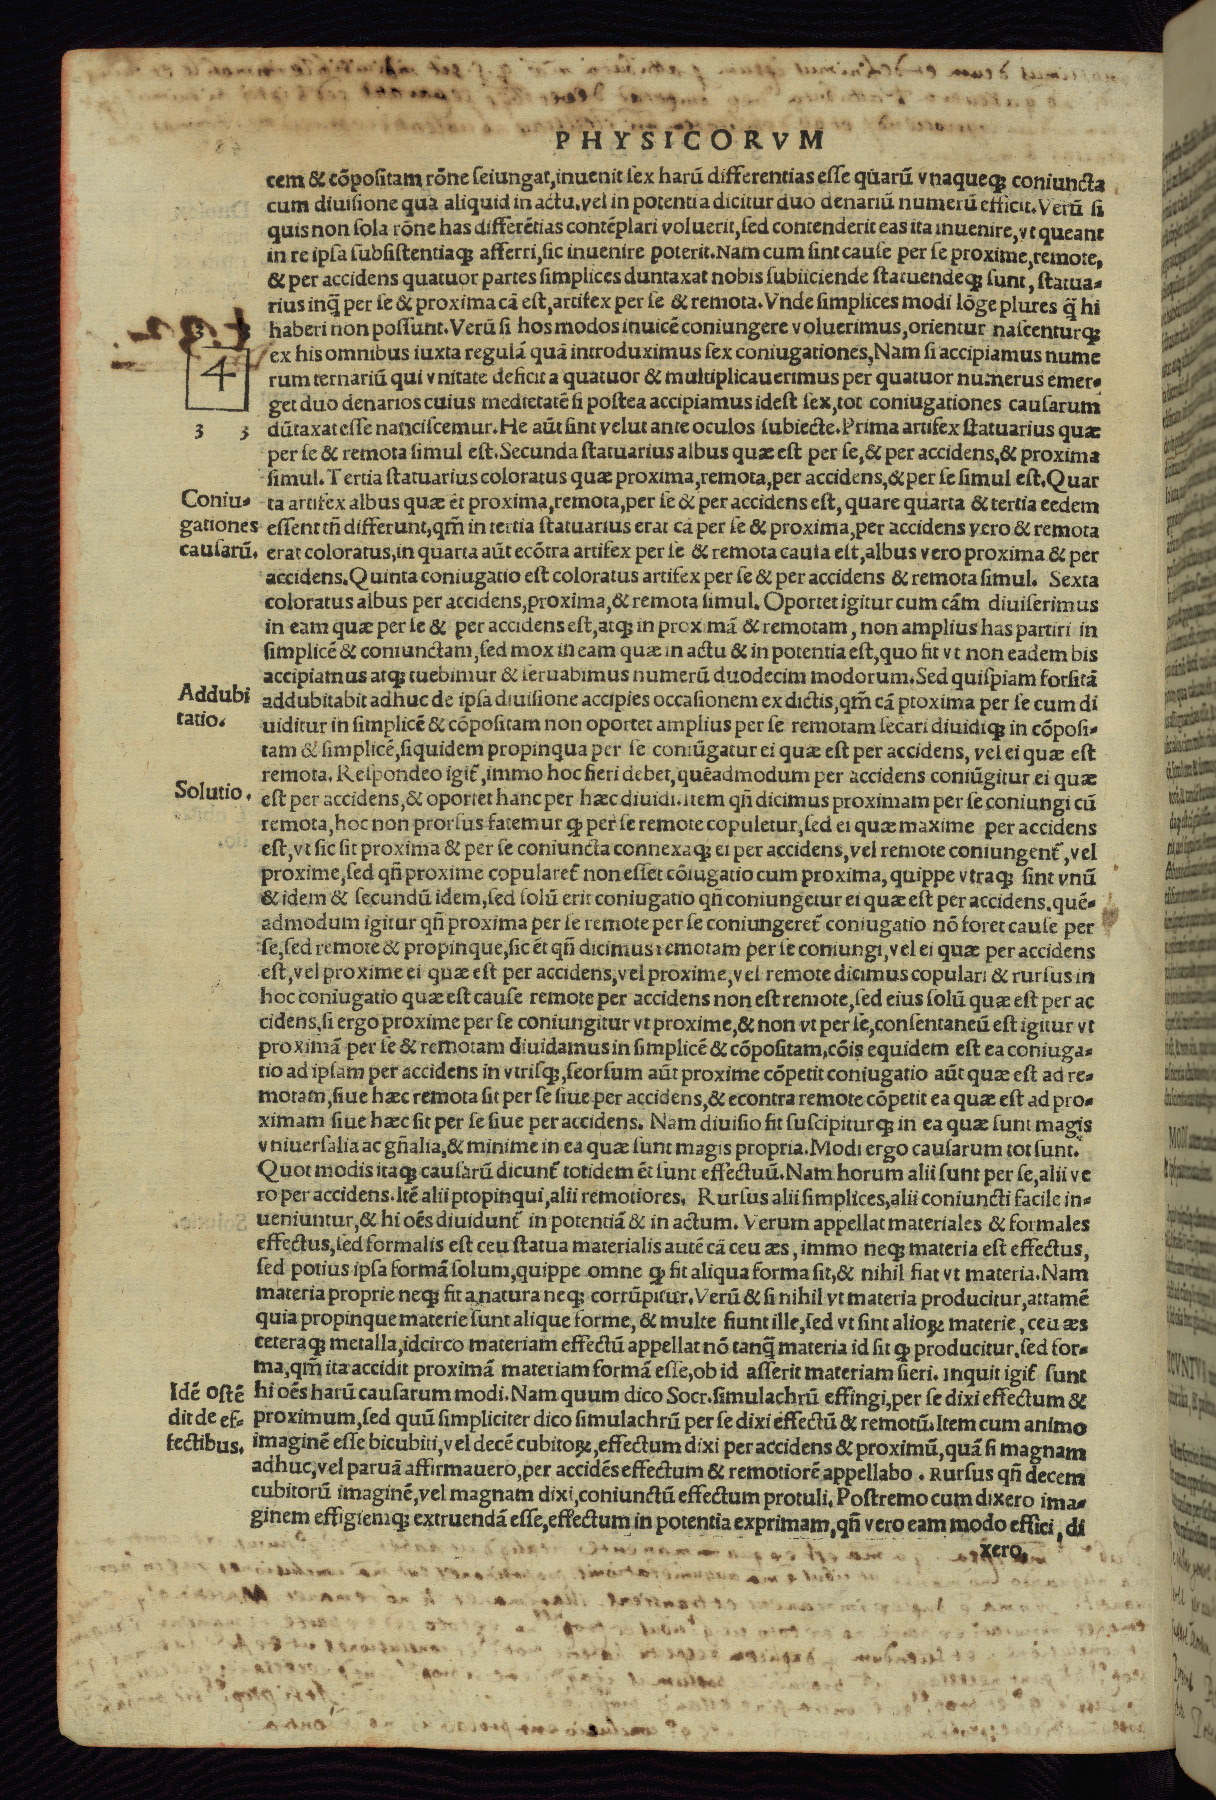 PHYSICORVM
cem & cõpositam rõne seiungat, inuenit sex harũ differentias esse quarũ vnaqueq; coniuncta
cum diuisione qua aliquid in actu, vel in potentia dicitur duo denariũ numerũ efficit. Verũ si
quis non sola rõne has differẽtias contẽplari voluerit, sed contenderit eas ita inuenire, vt queant
in re ipsa subsistentiaq; afferri, sic inuenire poterit. Nam cum sint cause per se proxime, remote,
& per accidens quatuor partes simplices duntaxat nobis subiiciende statuendeq; sunt, statua-
rius inq̃ per se & proxima cã est, artifex per se & remota. Vnde simplices modi lõge plures q̃ hi
haberi non possunt. Verũ si hos modos inuicẽ coniungere voluerimus, orientur nascenturq;
ex his omnibus iuxta regulã quã introduximus sex coniugationes, Nam si accipiamus nume
rum ternariũ qui vnitate deficit a quatuor & multiplicauerimus per quatuor numerus emer-
get duo denarios cuius medietatẽ si postea accipiamus idest sex, tot coniugationes causarum
dũtaxat esse nanciscemur. He aũt sint velut ante oculos subiecte. Prima artifex statuarius quæ
per se & remota simul est. Secunda statuarius albus quæ est per se, & per accidens, & proxima
simul. Tertia statuarius coloratus quæ proxima, remota, per accidens, & per se simul est. Quar
ta artifex albus quæ ẽt proxima, remota, per se & per accidens est, quare quarta & tertia eedem
essent tñ differunt, qm̃ in tertia statuarius erat cã per se & proxima, per accidens vero & remota
erat coloratus, in quarta aũt ecõtra artifex per se & remota causa est, albus vero proxima & per
accidens. Quinta coniugatio est coloratus artifex per se & per accidens & remota simul. Sexta
coloratus albus per accidens, proxima, & remota simul. Oportet igitur cum cãm diuiserimus
in eam quæ per se & per accidens est, atq; in proximã & remotam, non amplius has partiri in
simplicẽ & coniunctam, sed mox in eam quæ in actu & in potentia est, quo fit vt non eadem bis
accipiamus atq; tuebimur & seruabimus numerũ duodecim modorum. Sed quispiam forsitã
addubitabit adhuc de ipsa diuisione accipies occasionem ex dictis, qm̃ cã proxima per se cum di
uiditur in simplicẽ & cõpositam non oportet amplius per se remotam secari diuidiq; in cõposi-
tam & simplicẽ, siquidem propinqua per se coniũgatur ei quæ est per accidens, vel ei quæ est
remota. Respondeo igit̃, immo hoc fieri debet, quẽadmodum per accidens coniũgitur ei quæ
est per accidens, & oportet hanc per hæc diuidi. item qñ dicimus proximam per se coniungi cũ
remota, hoc non prorsus fatemur ꝙ per se remote copuletur, sed ei quæ maxime per accidens
est, vt sic sit proxima & per se coniuncta connexaq; ei per accidens, vel remote coniungent̃, vel
proxime, sed qñ proxime copularet̃ non esset cõiugatio cum proxima, quippe vtraq; sint vnũ
& idem & secundũ idem, sed solũ erit coniugatio qñ coniungetur ei quæ est per accidens. quẽ-
admodum igitur qñ proxima per se remote per se coniungeret̃ coniugatio nõ foret cause per
se, sed remote & propinque, sic ẽt qñ dicimus remotam per se coniungi, vel ei quæ per accidens
est, vel proxime ei quæ est per accidens, vel proxime, vel remote dicimus copulari & rursus in
hoc coniugatio quæ est cause remote per accidens non est remote, sed eius solũ quæ est per ac
cidens, si ergo proxime per se coniungitur vt proxime, & non vt per se, consentaneũ est igitur vt
proximã per se & remotam diuidamus in simplicẽ & cõpositam, cõis equidem est ea coniuga-
tio ad ipsam per accidens in vtrisq;, seorsum aũt proxime cõpetit coniugatio aũt quæ est ad re-
motam, siue hæc remota sit per se siue per accidens, & econtra remote cõpetit ea quæ est ad pro-
ximam siue hæc sit per se siue per accidens. Nam diuisio fit suscipiturq; in ea quæ sunt magis
vniuersalia ac gñalia, & minime in ea quæ sunt magis propria. Modi ergo causarum tot sunt.
Quot modis itaq; causarũ dicunt̃ totidem ẽt sunt effectuũ. Nam horum alii sunt per se, alii ve
ro per accidens. Itẽ alii propinqui, alii remotiores. Rursus alii simplices, alii coniuncti facile in-
ueniuntur, & hi oẽs diuidunt̃ in potentiã & in actum. Verum appellat materiales & formales
effectus, sed formalis est ceu statua materialis autẽ cã ceu æs, immo neq; materia est effectus,
sed potius ipsa formã solum, quippe omne ꝙ fit aliqua forma sit, & nihil fiat vt materia. Nam
materia proprie neq; fit a natura neq; corrũpitur. Verũ & si nihil vt materia producitur, attamẽ
quia propinque materie sunt alique forme, & multe fiunt ille, sed vt sint alioꝝ materie, ceu æs
ceteraq; metalla, idcirco materiam effectũ appellat nõ tanq̃ materia id sit ꝙ producitur, sed for-
ma, qm̃ ita accidit proximã materiam formã esse, ob id asserit materiam fieri. inquit igit̃ sunt
hi oẽs harũ causarum modi. Nam quum dico Socr. simulachrũ effingi, per se dixi effectum &
proximum, sed quũ simpliciter dico simulachrũ per se dixi effectũ & remotũ. Item cum animo
imaginẽ esse bicubiti, vel decẽ cubitoꝝ, effectum dixi per accidens & proximũ, quã si magnam
adhuc, vel paruã affirmauero, per accidẽs effectum & remotiorẽ appellabo. Rursus qñ decem
cubitorũ imaginẽ, vel magnam dixi, coniunctũ effectum protuli. Postremo cum dixero ima-
ginem effigiemq; extruendã esse, effectum in potentia exprimam, qñ vero eam modo effici, di
xero,
3 3
4
3 3
Coniu-
gationes
causarũ.
Addubi
tatio.
Solutio.
Idẽ ostẽ
dit de ef-
fectibus.